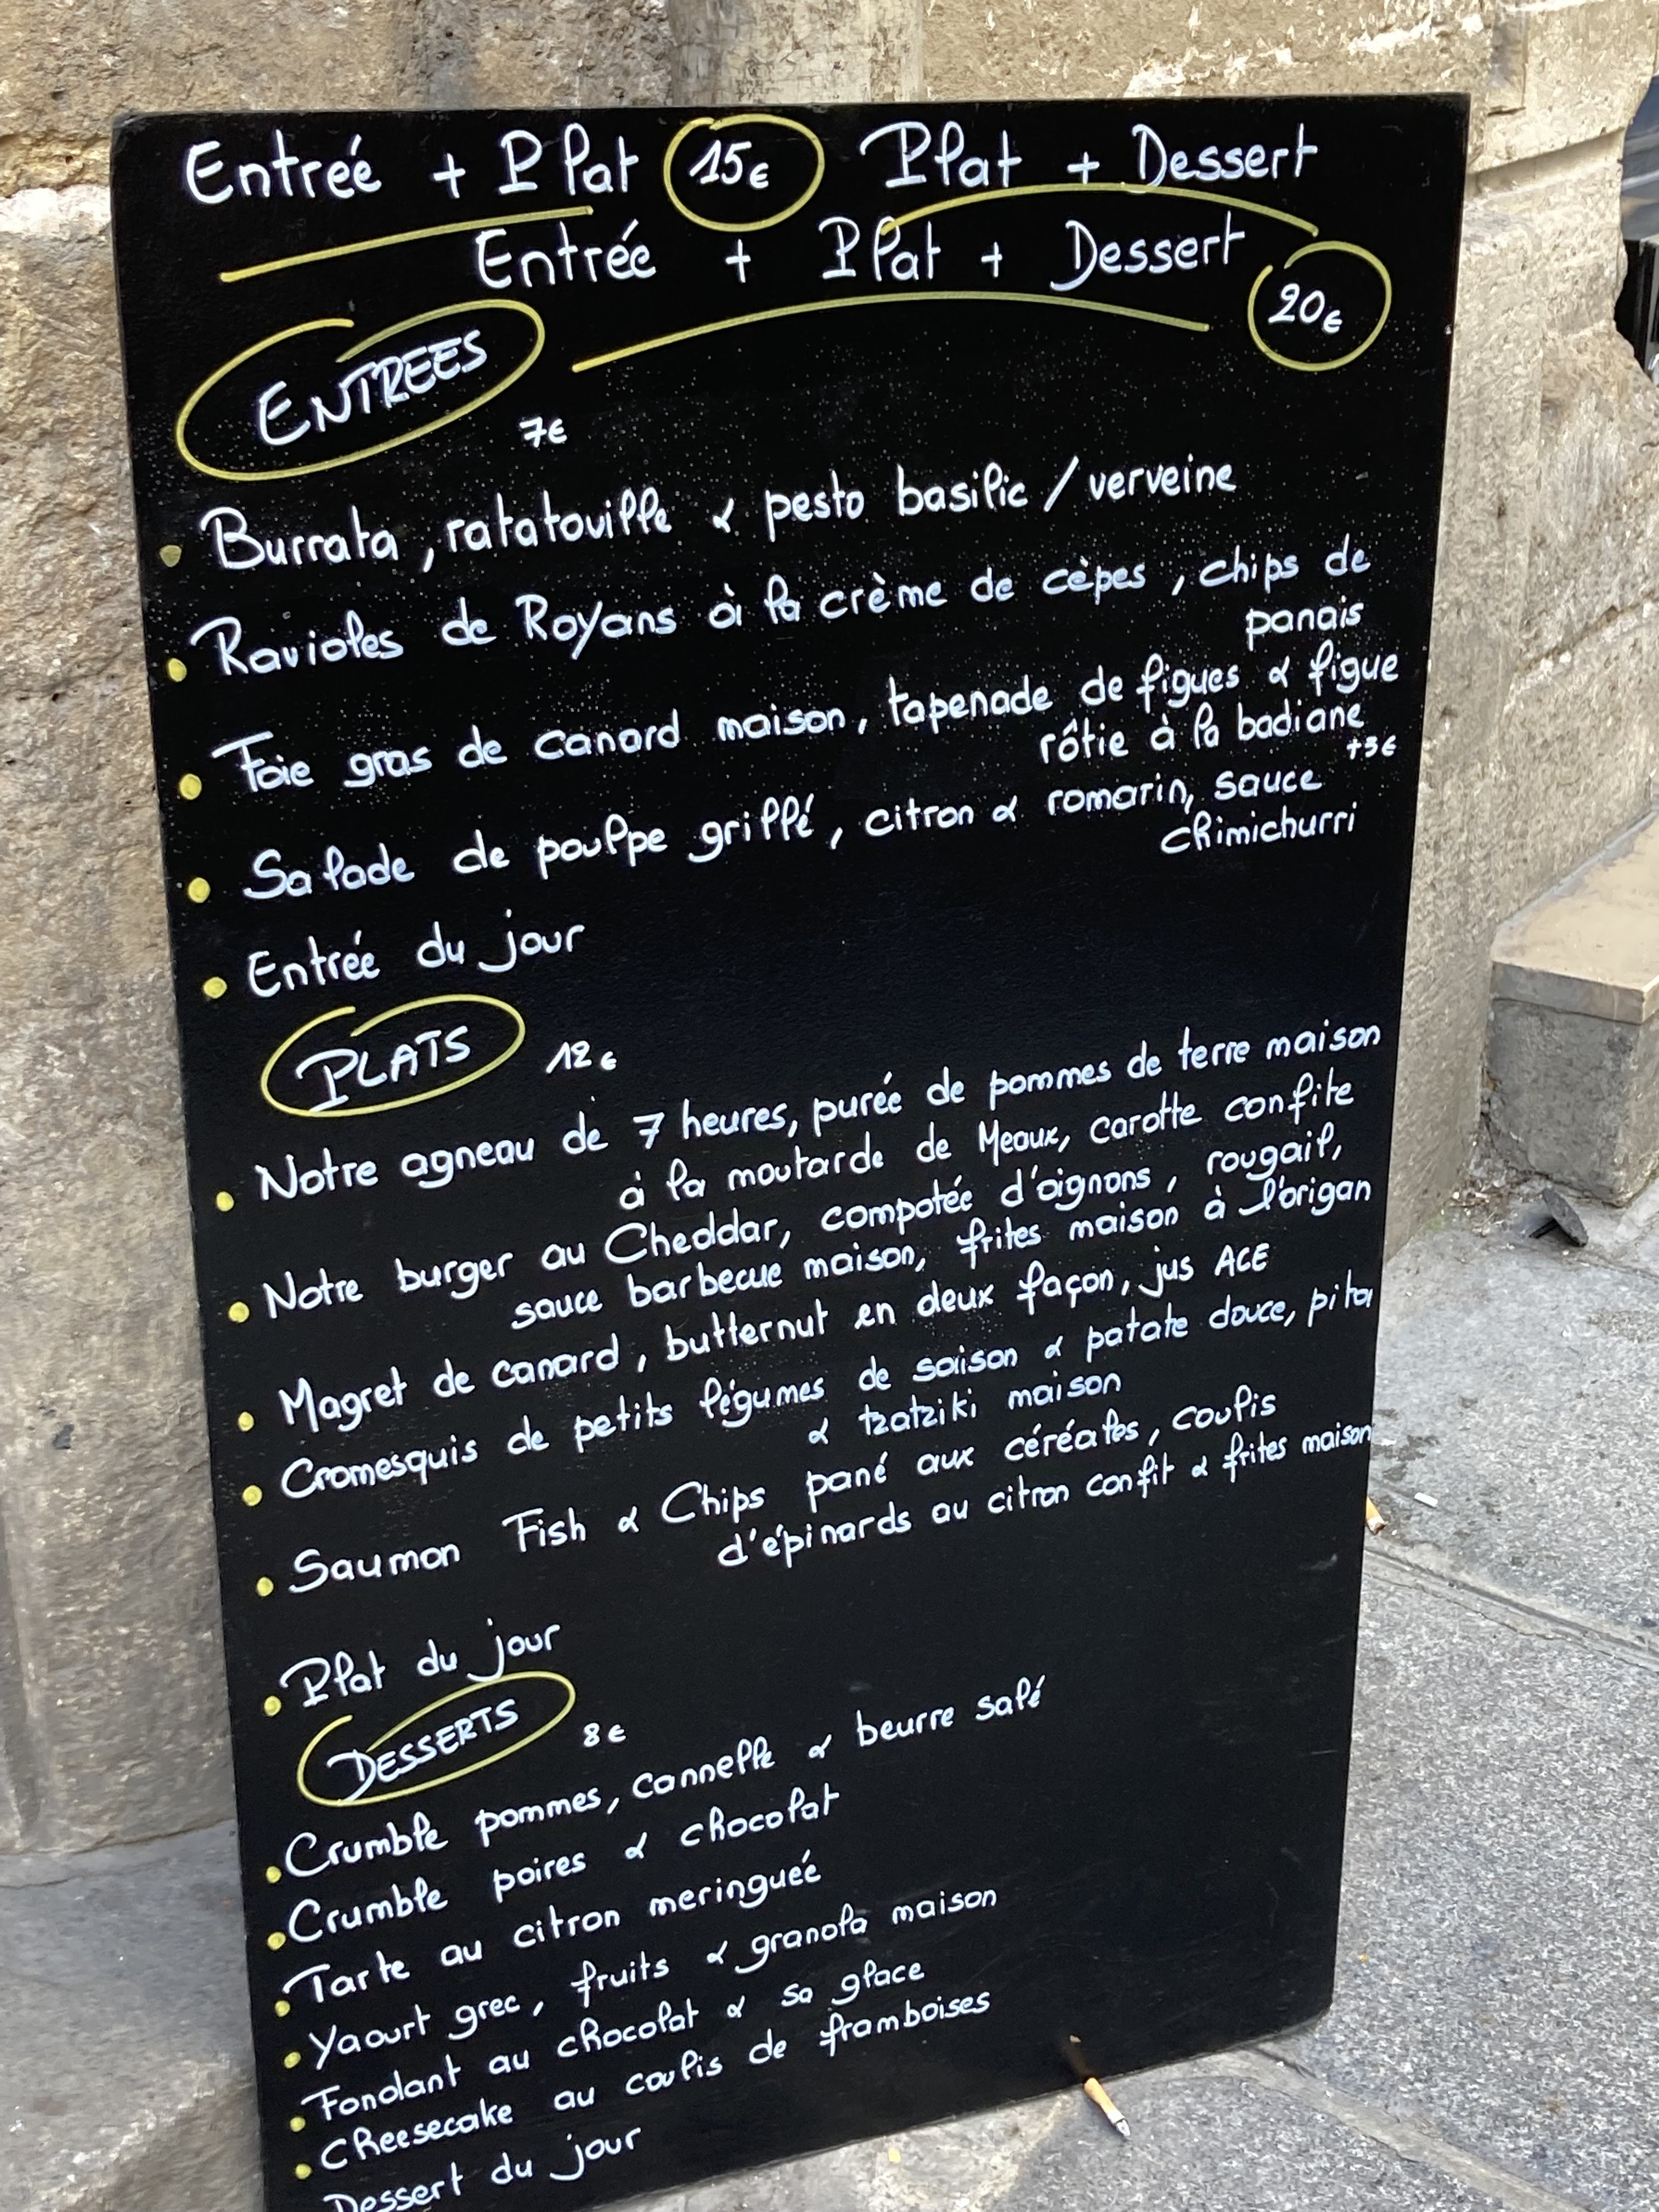 Entrée + Plat 15€ Plat + Dessert
Entrée + Plat + Dessert
20€
ENTREES
7€
• Burrata, ratatouille & pesto basilic / verveine
• Ravioles de Royans à la crème de cèpes, chips de
panais
• Foie gras de canard maison, tapenade de figues & figue
rôtie à la badiane
+3€
• Salade de poulpe grillé, citron & romarin, sauce
chimichurri
• Entrée du jour
PLATS 12€
• Notre agneau de 7 heures, purée de pommes de terre maison
à la moutarde de Meaux, carotte confite
• Notre burger au Cheddar, compotée d'oignons, rougail,
sauce barbecue maison, frites maison à l'origan
• Magret de canard, butternut en deux façon, jus ACE
• Cromesquis de petits légumes de saison & patate douce, pita
& tzatziki maison
• Saumon Fish & Chips pané aux céréales, coulis
d'épinards au citron confit & frites maison
• Plat du jour
DESSERTS 8€
• Crumble pommes, cannelle & beurre salé
• Crumble poires & chocolat
• Tarte au citron meringuée
• Yaourt grec, fruits & granola maison
• Fondant au chocolat & sa glace
• Cheesecake au coulis de framboises
Dessert du jour